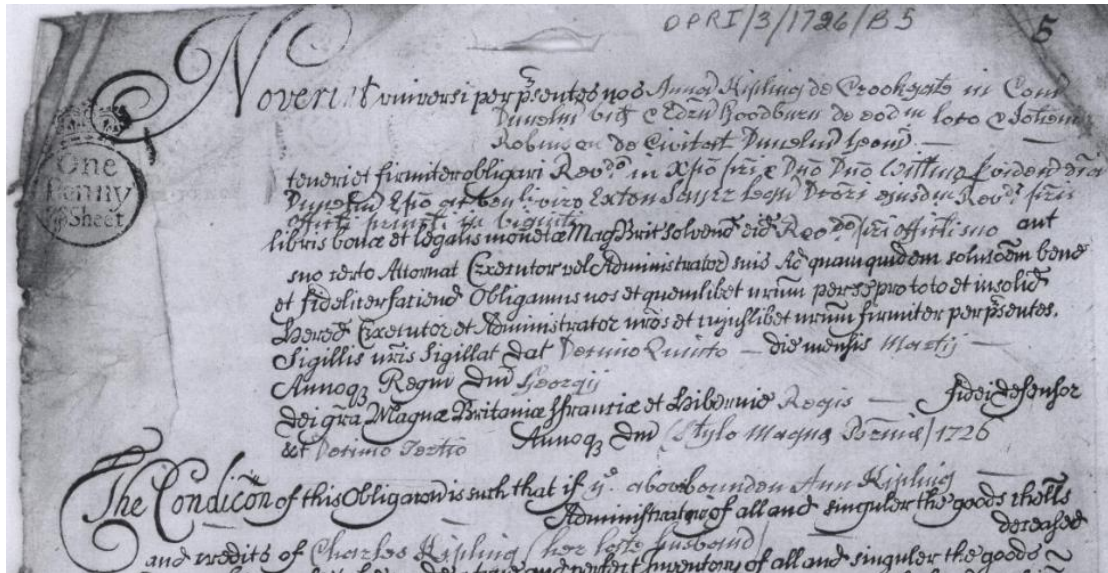 DPRI/3/1726/B5
5
One
Penny
Sheet
Noverint universi per p̃sentes nos Anna Kipling de Crookgate in Com
Dunelm & Edrũ Woodburn de eodm loco &
Robinson de Civitat Dunelm
teneri et firmiter obligari Revdo in Xpõ p̃ri & Dño Dño Willmo
Dunelm Ep̃o Exton Sayer Legũ ejusdm Revdi p̃ris
in viginti
libris bonæ et legalis monetæ Mag Brit solvend eid Revdo p̃ri aut
suo certo Attornat Executor vel Administrator suis Ad quam quidem soluc̃oem bene
et fideliter faciend Obligamus nos et quemlibet nr̃um per se pro toto et in solid
Hered Executor et Administrator nr̃os et cujuslibet nr̃um firmiter per p̃sentes.
Sigillis nr̃is Sigillat Dat Decimo Quinto — die mensis Martij —
Annoq Regni Dñi Georgij
Dei gr̃a Magnæ Britaniæ ffranciæ et Hibernie Regis — fidei defensor
&c Decimo Tertio Annoq Dñi (Stylo Magnæ) 1726
The Condic̃on of this Obligac̃on is such that if ye abovebounden Ann Kipling
Administrator of all and singuler the goods
and credits of Charles Kipling (her late husband) deceased
and perfect Inventory of all and singuler the goods